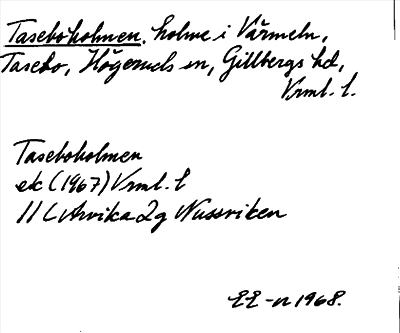 Taseboholmen. holme i Värmeln,
Tasebo, Högeruds sn, Gillbergs hd,
Vrml. l.
Taseboholmen
ek (1967) Vrml. l
11 C Arvika 2 g Nussviken
1968.